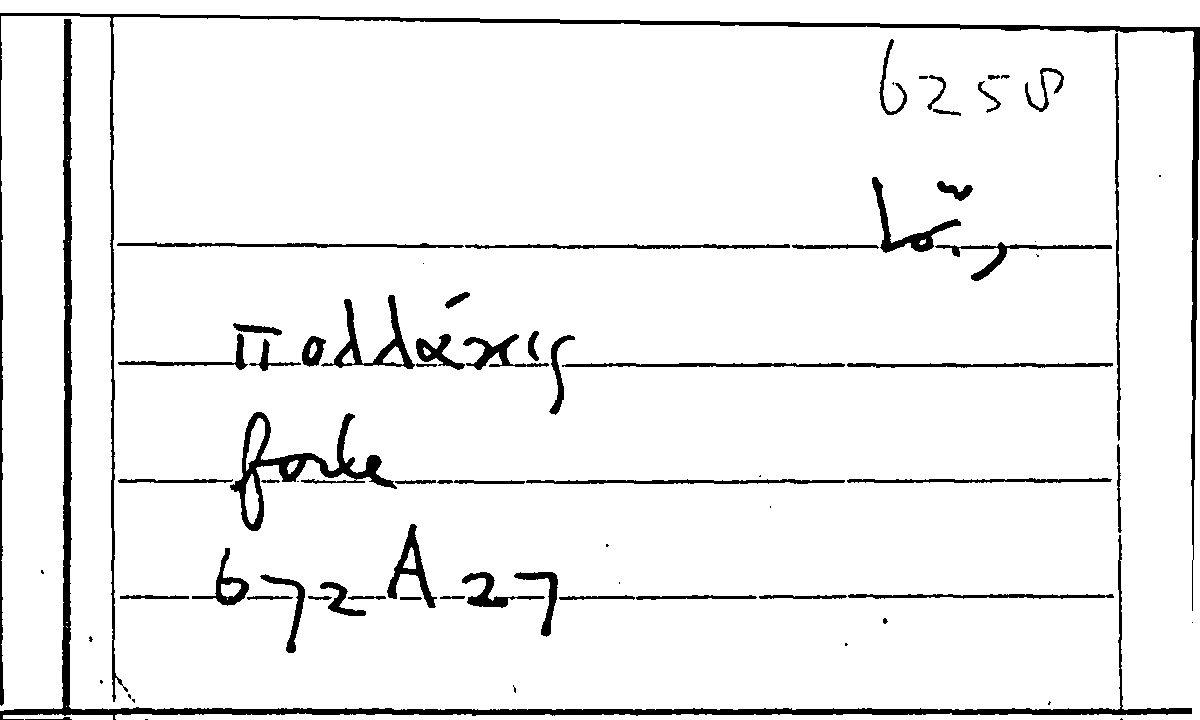 6258
πολλάκις
forte
672 A 27